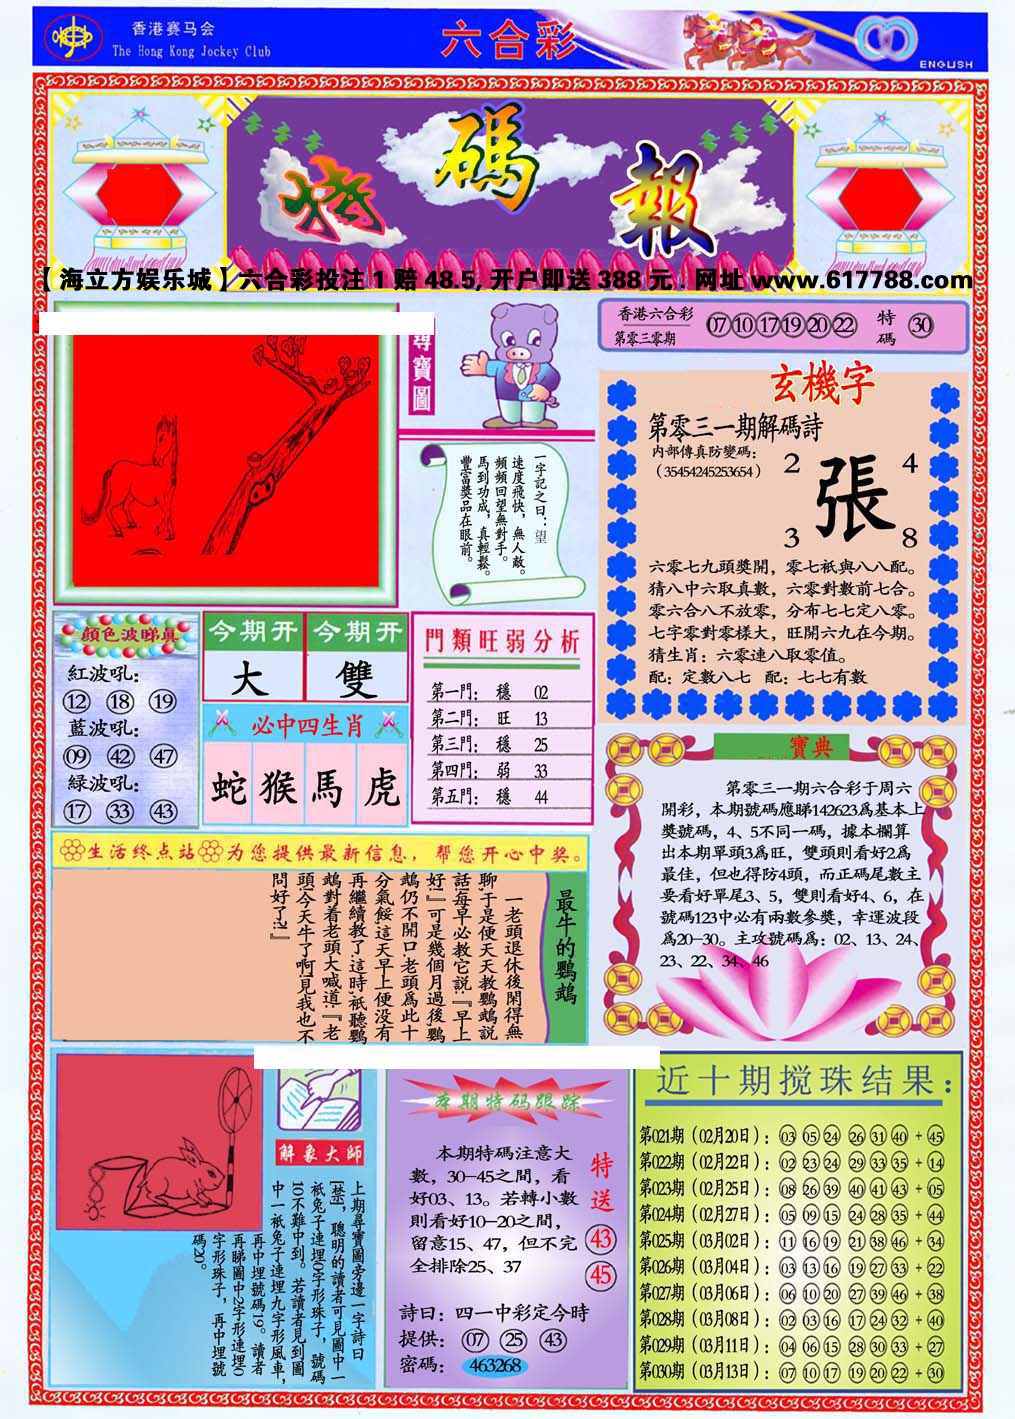 香港赛马会
The Hong Kong Jockey Club
六合彩
ENGLISH
特碼報
【海立方娱乐城】六合彩投注1赔48.5,开户即送388元.网址www.617788.com
尋寶圖
一字記之曰：望
速度飛快，無人敵。
頻頻回望無對手。
馬到功成，真輕鬆。
豐富獎品在眼前。
香港六合彩
第零三零期
07 10 17 19 20 22 特碼 30
玄機字
第零三一期解碼詩
内部傳真防變碼：
（35454245253654）
2 4
張
3 8
六零七九頭獎開，零七衹與八八配。
猜八中六取真數，六零對數前七合。
零六合八不放零，分布七七定八零。
七字零對零樣大，旺開六九在今期。
猜生肖：六零連八取零值。
配：定數八七 配：七七有數
顔色波睇真
紅波吼：
12 18 19
藍波吼：
09 42 47
緑波吼：
17 33 43
今期开 今期开
大 雙
必中四生肖
蛇 猴 馬 虎
門類旺弱分析
第一門： 穩 02
第二門： 旺 13
第三門： 穩 25
第四門： 弱 33
第五門： 穩 44
寶典
第零三一期六合彩于周六
開彩，本期號碼應睇142623爲基本上
獎號碼，4、5不同一碼，據本欄算
出本期單頭3爲旺，雙頭則看好2爲
最佳，但也得防4頭，而正碼尾數主
要看好單尾3、5，雙則看好4、6，在
號碼123中必有兩數參獎，幸運波段
爲20-30。主攻號碼爲：02、13、24、
23、22、34、46
生活终点站 为您提供最新信息，帮您开心中奖。
最牛的鸚鵡
一老頭退休後閑得無
聊，于是便天天教鸚鵡説
話，每早必教它説：『早上
好！』可是幾個月過後鸚
鵡仍不開口，老頭爲此十
分氣餒，這天早上便没有
再繼續教了，這時，衹聽鸚
鵡對着老頭大喊道：『老
頭，今天牛了啊，見我也不
問好了?!』
解象大師
上期尋寶圖旁邊一字詩曰
[禁]，聰明的讀者可見圖中一
衹兔子連埋0字形珠子，號碼
10不難中到。若讀者見到圖
中一衹兔子連埋九字形風車，
再中埋號碼19。讀者
再睇圖中2字形連埋0
字形珠子，再中埋號
碼20。
本期特码跟踪
本期特碼注意大
數，30-45之間，看
好03、13。若轉小數
則看好10-20之間，
留意15、47，但不完
全排除25、37
特送
43
45
詩曰：四一中彩定今時
提供： 07 25 43
密碼： 463268
近十期搅珠结果：
第021期（02月20日）：03 05 24 26 31 40 + 45
第022期（02月22日）：02 23 24 29 33 35 + 14
第023期（02月25日）：08 26 39 40 41 43 + 05
第024期（02月27日）：05 09 15 24 28 35 + 44
第025期（03月02日）：11 16 19 21 38 46 + 34
第026期（03月04日）：03 13 16 19 27 33 + 22
第027期（03月06日）：06 10 20 27 39 46 + 38
第028期（03月08日）：02 03 16 17 24 32 + 40
第029期（03月11日）：04 06 15 28 30 33 + 27
第030期（03月13日）：07 10 17 19 20 22 + 30